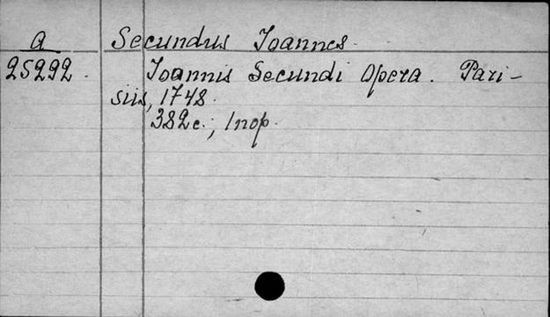 A
25292.
Secundus Ioannes.
Ioannis Secundi Opera. Pari-
siis, 1748.
382c., 1 пор.